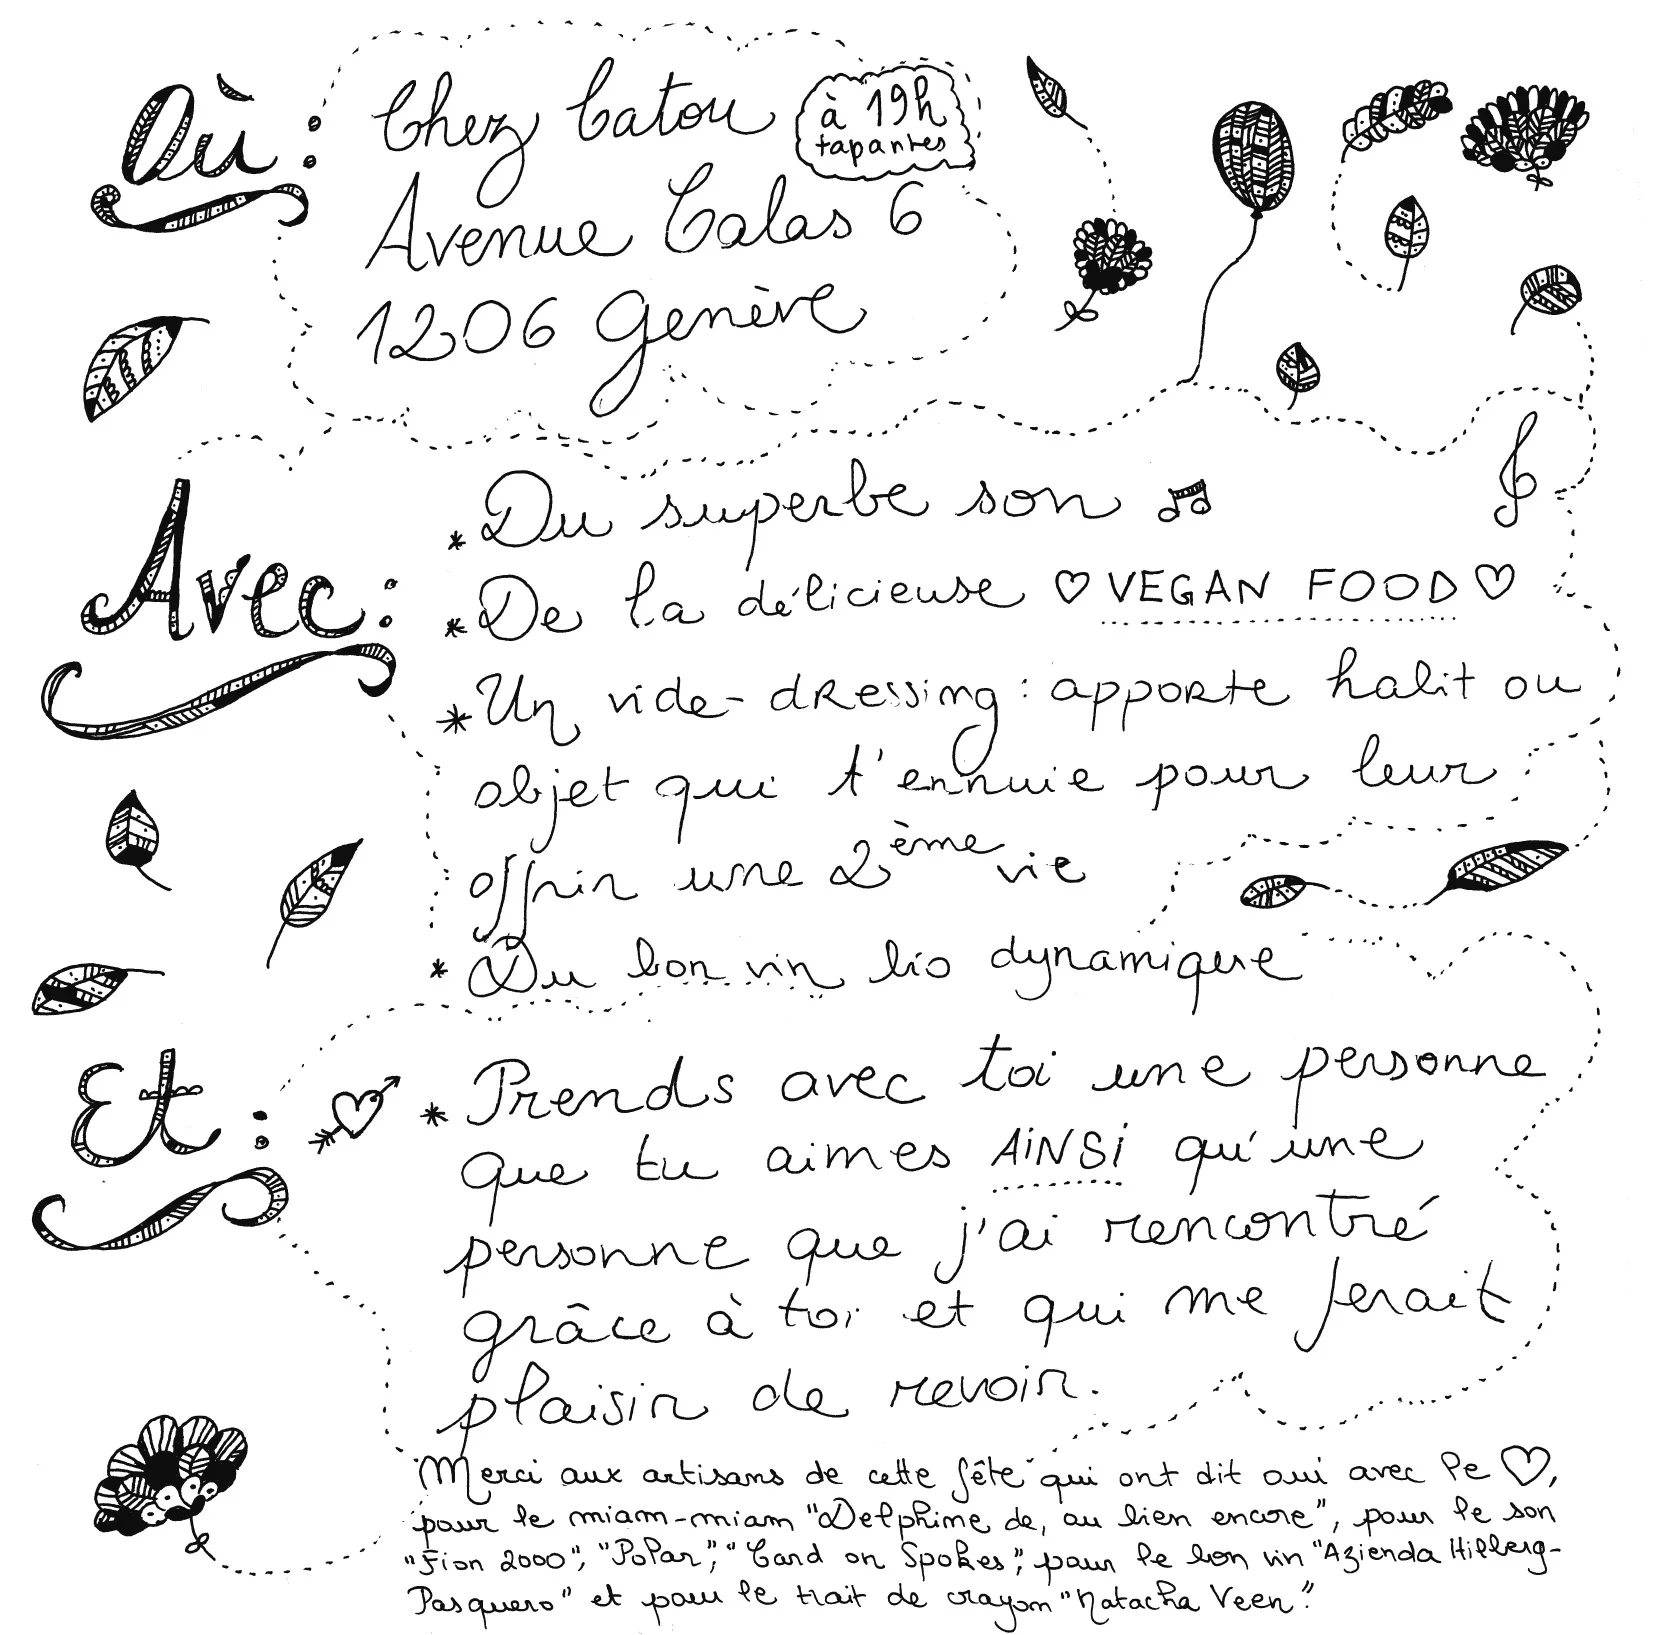 Où :
Chez Catou
à 19h
tapantes
Avenue Calas 6
1206 Genève
Avec :
* Du superbe son ♫
* De la délicieuse ♡ VEGAN FOOD ♡
* Un vide-dressing : apporte habit ou
objet qui t'ennuie pour leur
offrir une 2ème vie
* Du bon vin bio dynamique
Et :
* Prends avec toi une personne
que tu aimes AiNSi qu'une
personne que j'ai rencontré
grâce à toi et qui me ferait
plaisir de revoir.
Merci aux artisans de cette fête qui ont dit oui avec le ♡,
pour le miam-miam "Delphine de, ou bien encore", pour le son
"Fion 2000", "Polar", "Card on Spokes", pour le bon vin "Azienda Hilberg-
Pasquero" et pour le trait de crayon "Natacha Veen".